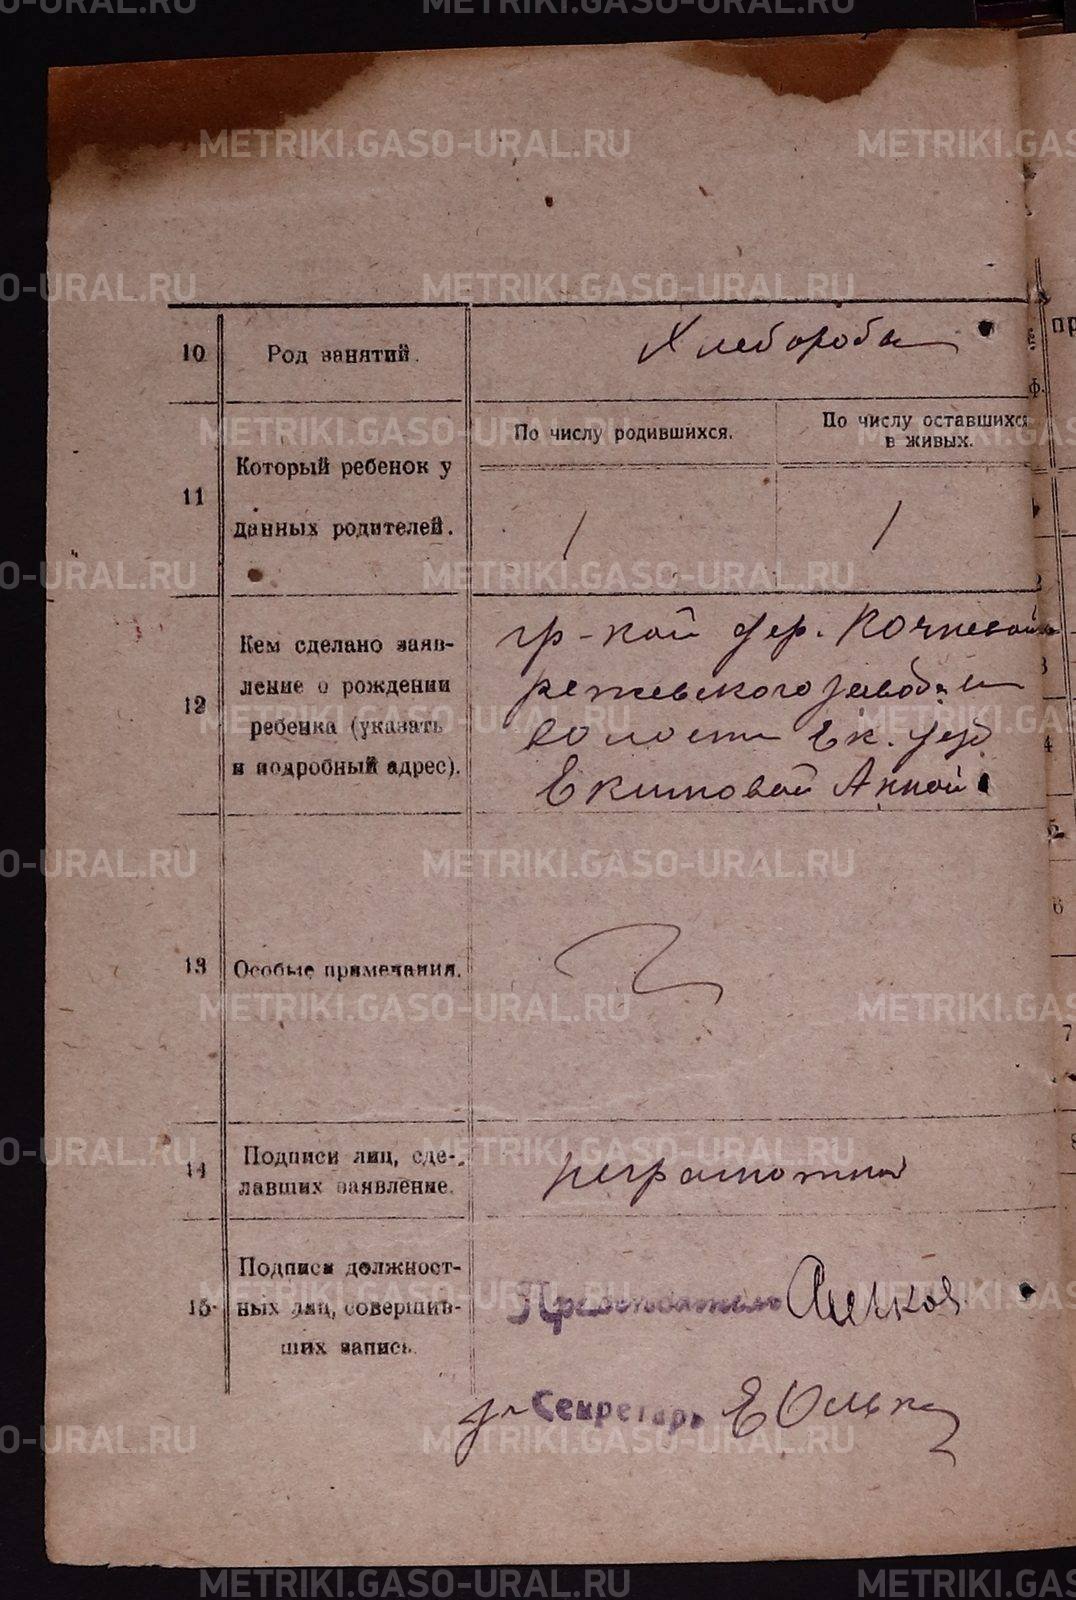 10
Род занятий.
Хлеборобы
11
Который ребенок у
данных родителей.
По числу родившихся.
По числу оставшихся
в живых.
1
1
12
Кем сделано заяв-
ление о рождении
ребенка (указать
и подробный адрес).
гр-кой дер. Кочневой
режевского завода
волости Ек. уез
Екимовой Анной
13
Особые примечания.
14
Подписи лиц, сде-
лавших заявление.
неграмотная
15
Подписи должност-
ных лиц, совершив-
ших запись.
Председатель
Секретарь
METRIKI.GASO-URAL.RU